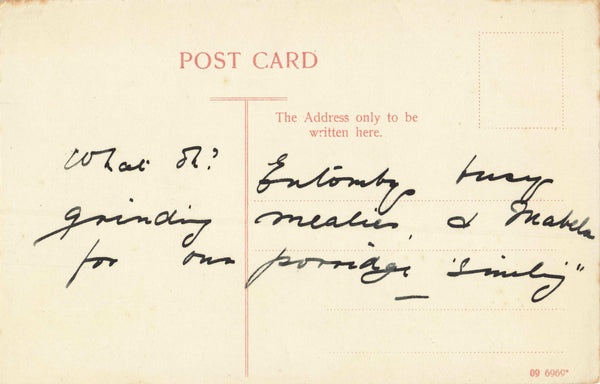 POST CARD
The Address only to be
written here.
What Oh? Entombys busy
grinding mealies, & Mabela
for our porridge — "Simeling"
09 6969*